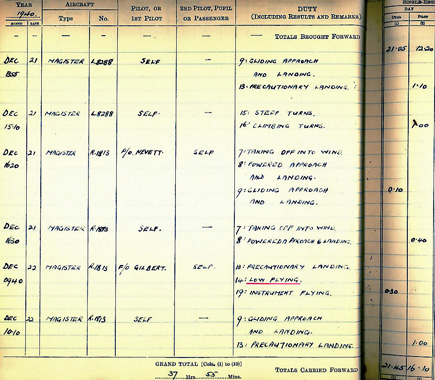 YEAR AIRCRAFT PILOT, OR 2ND PILOT, PUPIL DUTY
1940. Type No. 1ST PILOT OR PASSENGER (INCLUDING RESULTS AND REMARKS) DAY
MONTH DATE DUAL
— — — — — — TOTALS BROUGHT FORWARD 21·05 12·20
DEC 21 MAGISTER L8288 SELF — 9: GLIDING APPROACH
1355 AND LANDING.
13: PRECAUTIONARY LANDING. 1·10
DEC 21 MAGISTER L8288 SELF. — 15: STEEP TURNS.
1510 16: CLIMBING TURNS.
DEC 21 MAGISTER R.1813 P/O. NEVETT. SELF 7: TAKING OFF INTO WIND.
1620 8: POWERED APPROACH
AND LANDING.
9: GLIDING APPROACH 0·10
AND LANDING.
DEC 21 MAGISTER R.1813 SELF. — 7: TAKING OFF INTO WIND.
8: POWERED APROACH & LANDING. 0·40
DEC 22 MAGISTER R.1813 P/O GILBERT. SELF. 13: PRECAUTIONARY LANDING.
0940 14: LOW FLYING.
19: INSTRUMENT FLYING.
DEC 22 MAGISTER R.1813 SELF — 9: GLIDING APPROACH
1010 AND LANDING.
13: PRECAUTIONARY LANDING. 1.00
GRAND TOTAL [Cols. (1) to (10)]
37 Hrs. 55 Mins. TOTALS CARRIED FORWARD 21·45 16·10